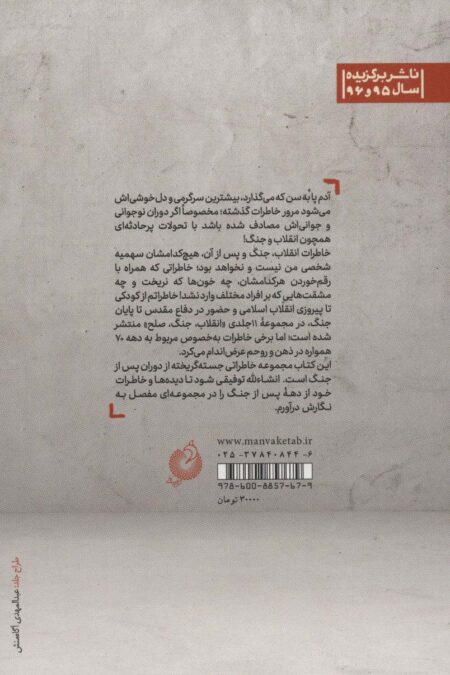 ناشر برگزیده
سال ۹۵ و ۹۶
آدم پا به سن که می‌گذارد، بیشترین سرگرمی و دل‌خوشی‌اش
می‌شود مرور خاطرات گذشته؛ مخصوصاً اگر دوران نوجوانی
و جوانی‌اش مصادف شده باشد با تحولات پرحادثه‌ای
همچون انقلاب و جنگ!
خاطرات انقلاب، جنگ و پس از آن، هیچ‌کدامشان سهمیه
شخصی من نیست و نخواهد بود؛ خاطراتی که همراه با
رقم‌خوردن هرکدامشان، چه خون‌ها که نریخت و چه
مشقت‌هایی که بر افراد مختلف وارد نشد! خاطراتم از کودکی
تا پیروزی انقلاب اسلامی و حضور در دفاع مقدس تا پایان
جنگ، در مجموعهٔ ۱۱جلدی «انقلاب، جنگ، صلح» منتشر
شده است؛ اما برخی خاطرات به‌خصوص مربوط به دهه ۷۰
همواره در ذهن و روحم عرض‌اندام می‌کرد.
این کتاب مجموعه خاطراتی جسته‌گریخته از دوران پس از
جنگ است. انشاءالله توفیقی شود تا دیده‌ها و خاطرات
خود از دههٔ پس از جنگ را در مجموعه‌ای مفصل به
نگارش درآورم.
www.manvaketab.ir
۰۲۵ -۳۷۸۴۰۸۴۴ -۶
978-600-8857-67-9
۳۰۰۰۰ تومان
طراح جلد: عبدالمهدی آگاه‌منش